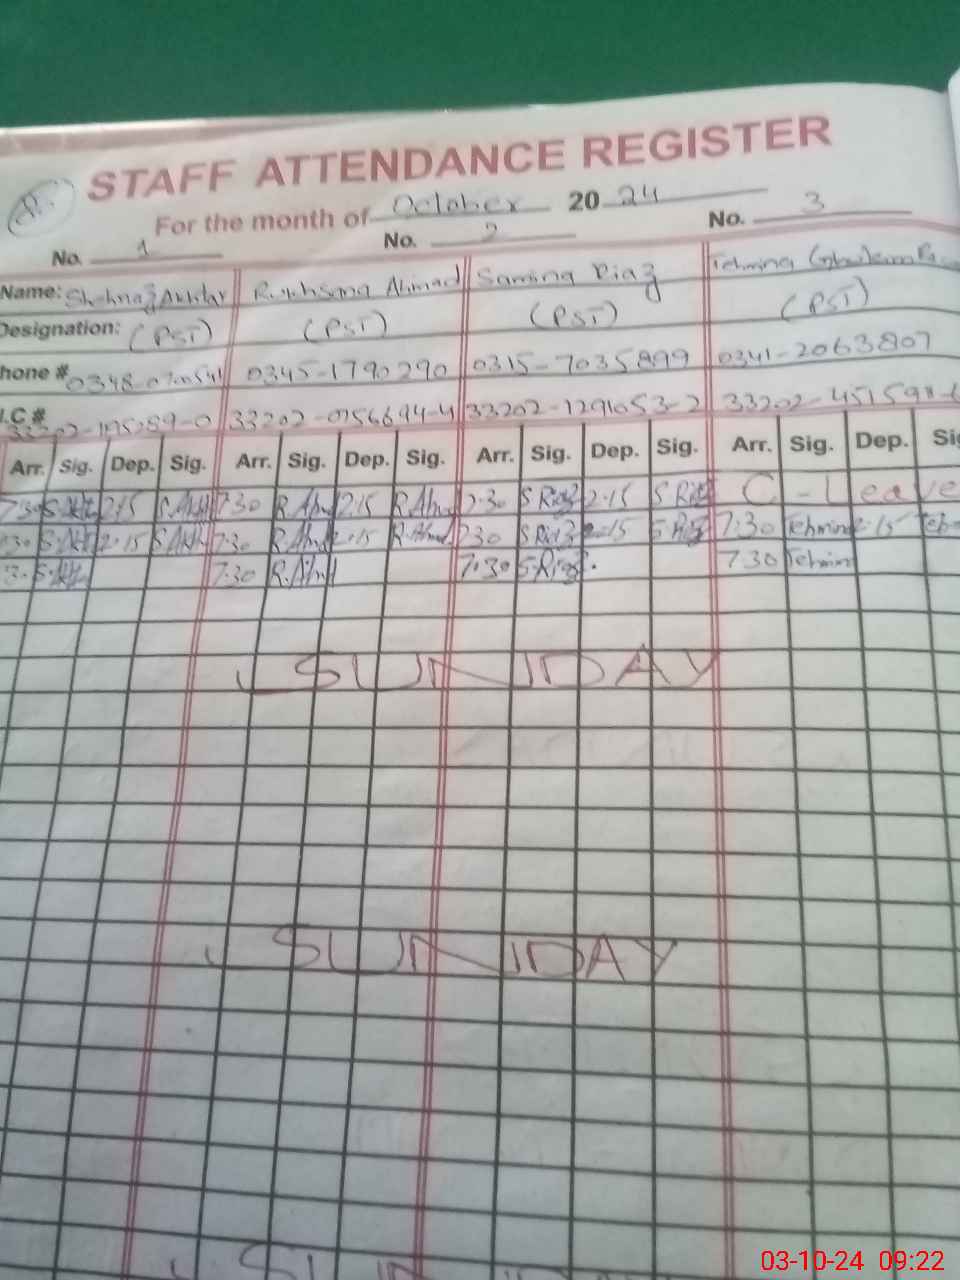 STAFF ATTENDANCE REGISTER
For the month of October 2024
No. 1 No. 2 No. 3
Name: Shahnaz Akhtar Rukhsana Ahmad Samina Riaz Tehmina
Designation: (PST) (PST) (PST) (PST)
hone # 0345-1790290 0315-7035899 0341-2063807
.I.C # 33202-0756694-4 33202-1291053-2
Arr. Sig. Dep. Sig. Arr. Sig. Dep. Sig. Arr. Sig. Dep. Sig. Arr. Sig. Dep. Sig
7:30 S.Akh 2:15 S.Akh 7:30 R.Ahm 2.15 R.Ahm 7:30 S Riaz 2.15 S Riaz C-Leave
:30 S.Akh 2.15 S.Akh 7:30 R.Ahm 2.15 R.Ahmd 7:30 S Riaz 2:15 S Riaz 7:30 Tehmina 2:15 Tehm
S.Akh 7:30 R.Ahm 7:30 S.Riaz 7:30 Tehmin
SUNDAY
SUNDAY
03-10-24 09:22